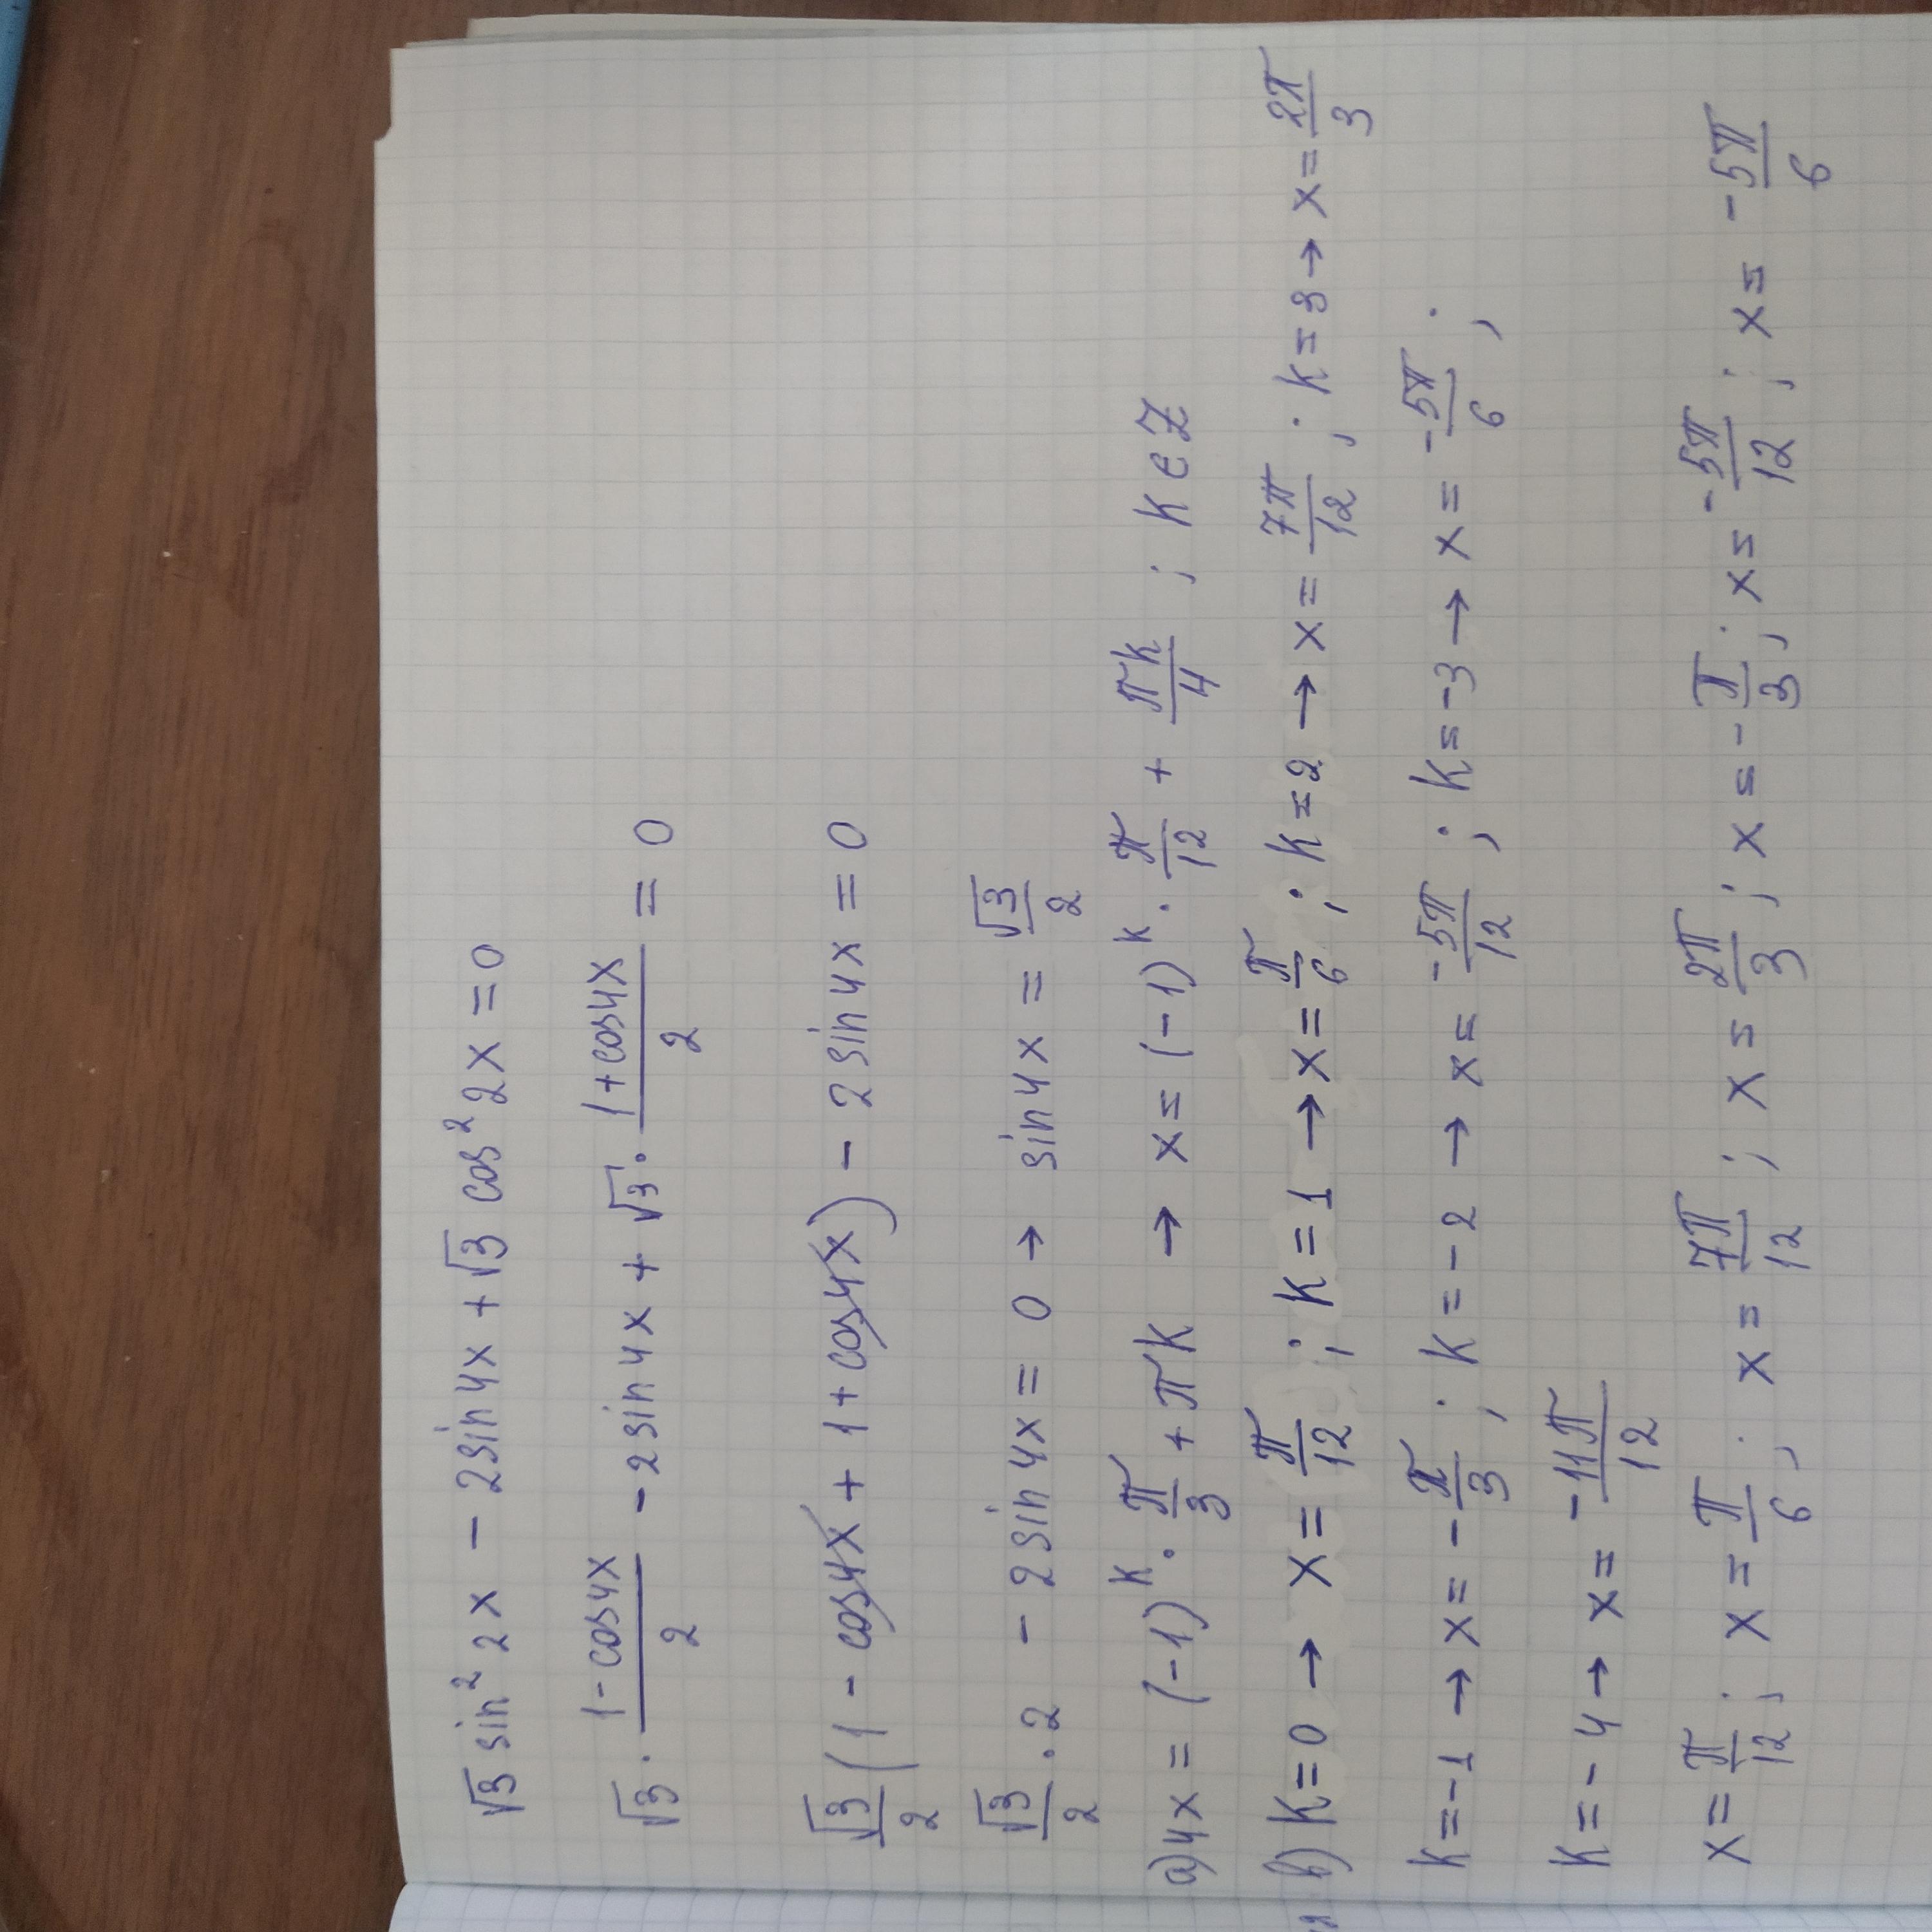 √3 sin² 2x − 2sin4x + √3 cos² 2x = 0
√3 · (1−cos4x)/2 − 2sin4x + √3 · (1+cos4x)/2 = 0
√3/2 (1 − cos4x + 1 + cos4x) − 2sin4x = 0
√3/2 · 2 − 2sin4x = 0 → sin4x = √3/2
a) 4x = (−1)^k · π/3 + πk → x = (−1)^k · π/12 + πk/4 ; k∈Z
b) k=0 → x = π/12 ; k=1 → x = π/6 ; k=2 → x = 7π/12 ; k=3 → x = 2π/3
k=−1 → x = −π/3 ; k=−2 → x = −5π/12 ; k=−3 → x = −5π/6 ;
k=−4 → x = −11π/12
x = π/12 ; x = π/6 ; x = 7π/12 ; x = 2π/3 ; x = −π/3 ; x = −5π/12 ; x = −5π/6